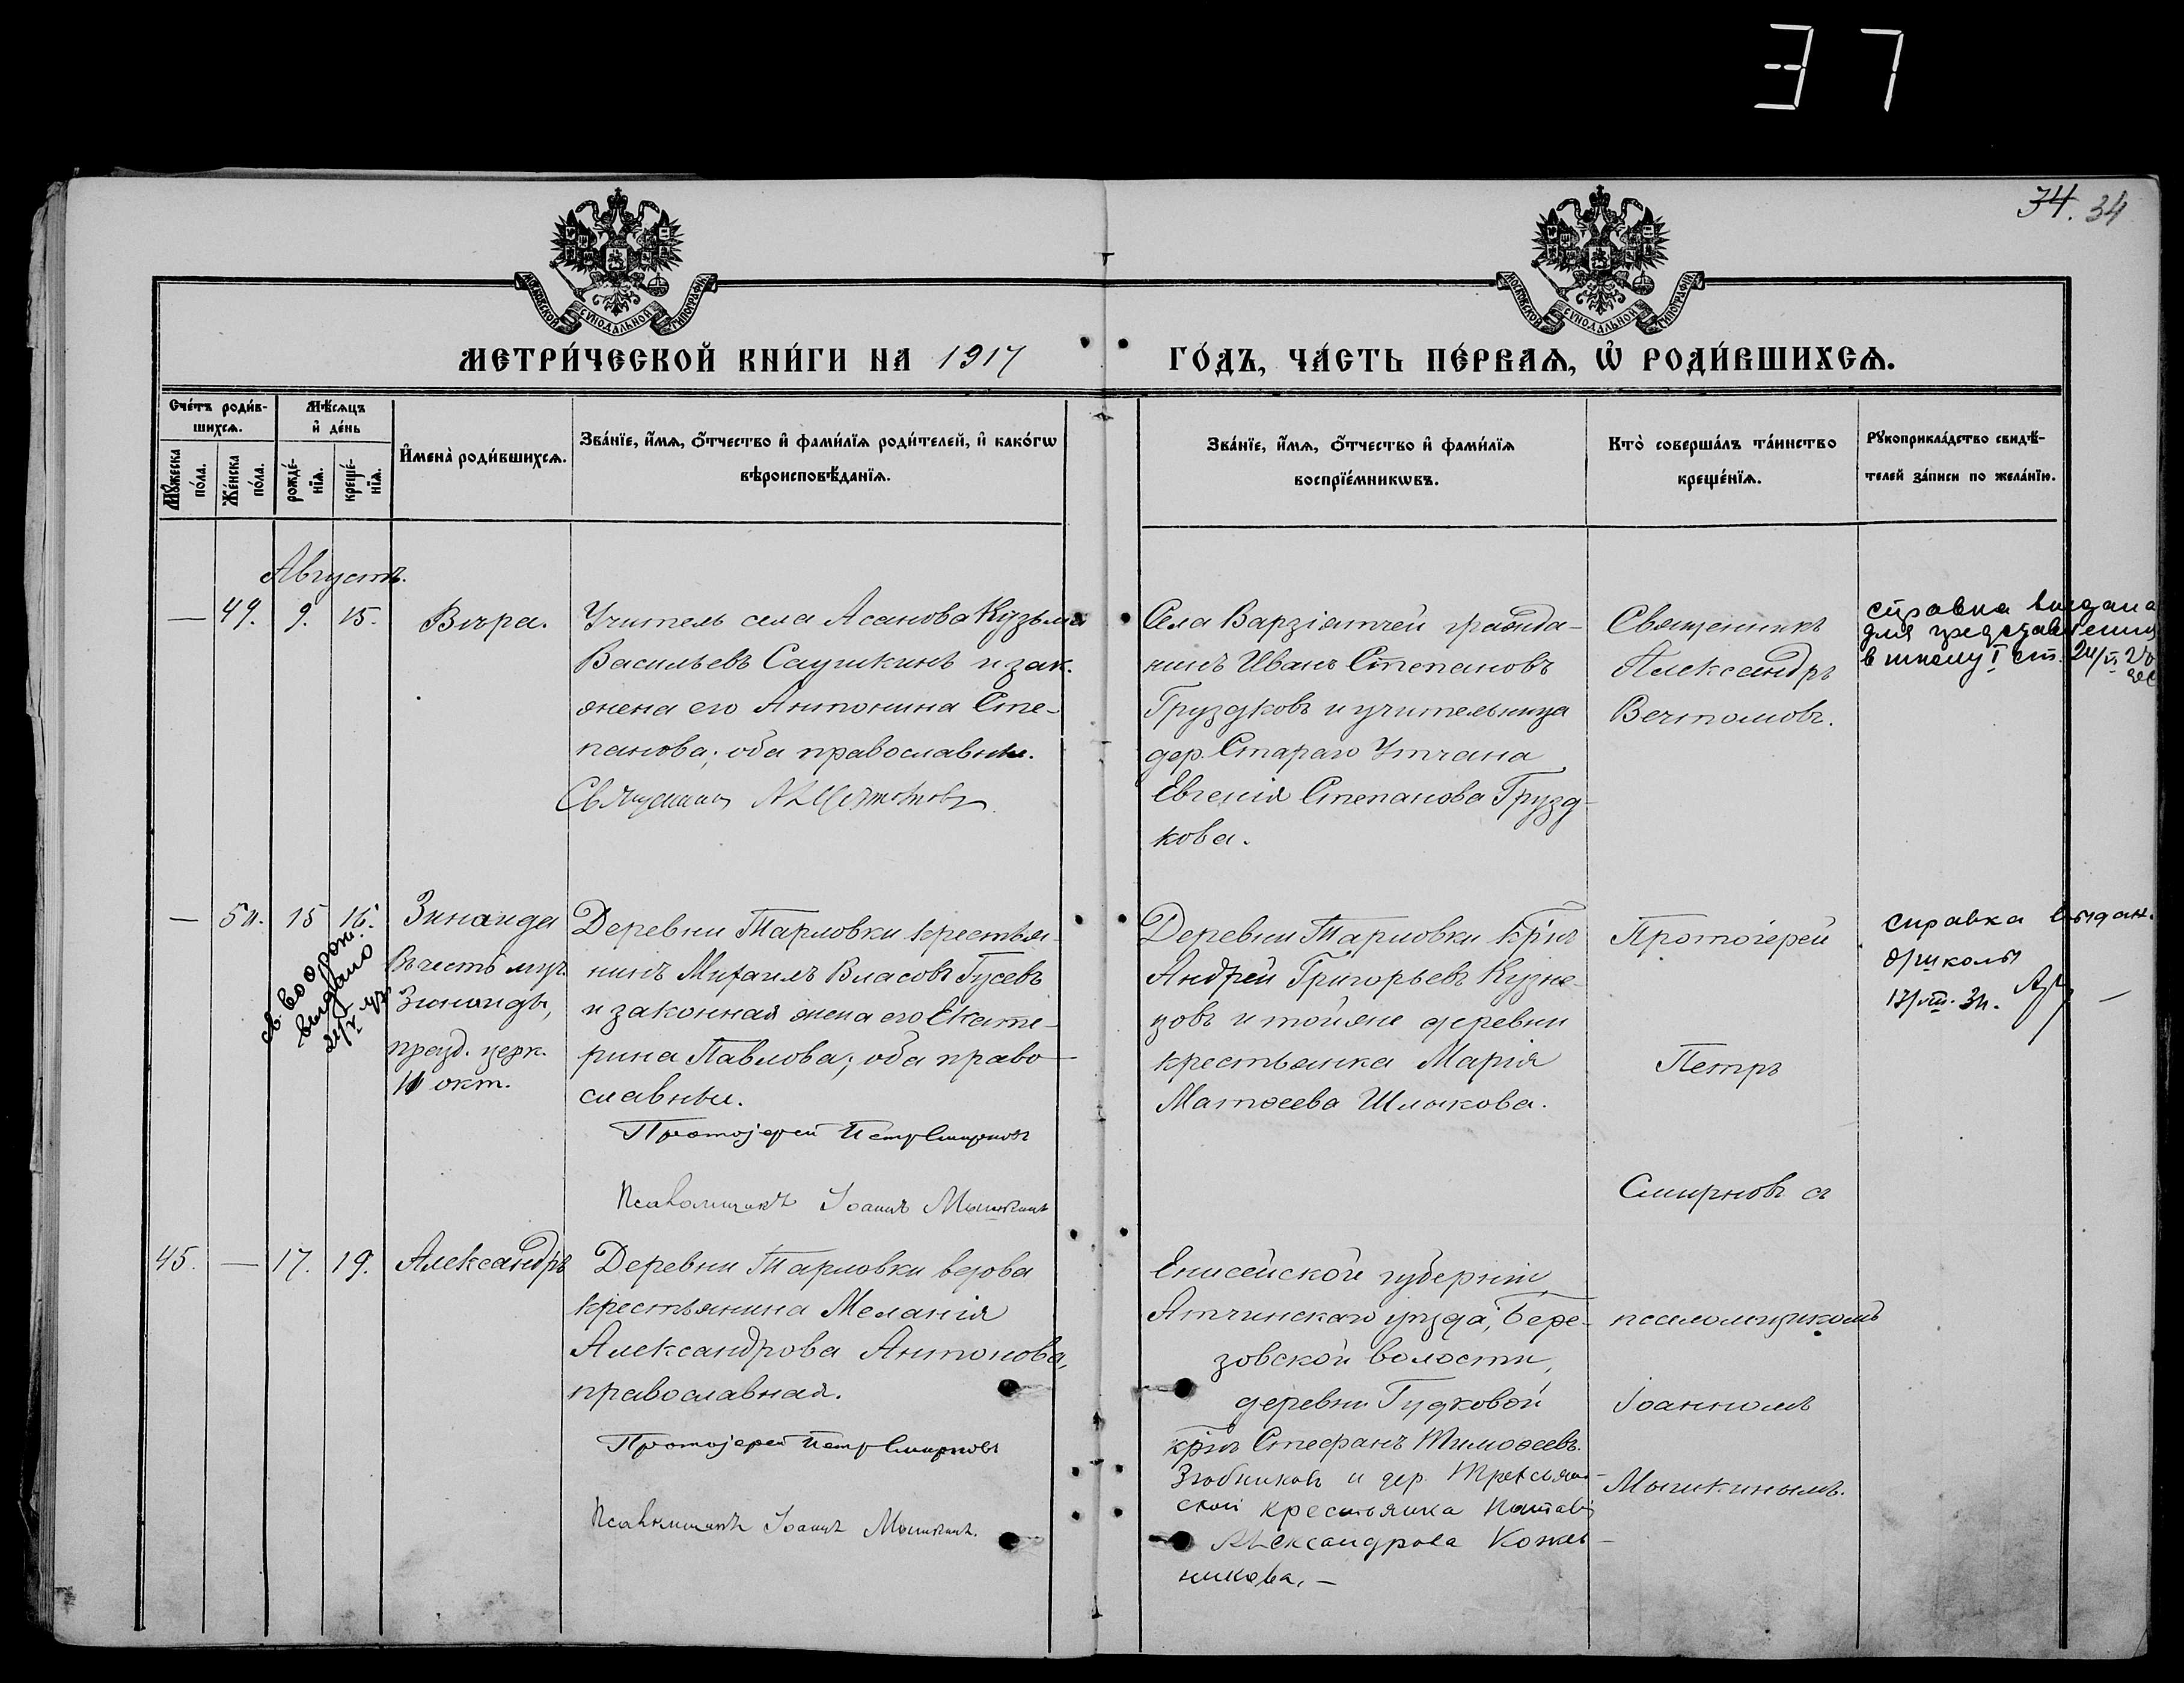 37
34. 34
МОСКОВСКОЙ СѴНОДАЛЬНОЙ ТИПОГРАФІИ
МОСКОВСКОЙ СѴНОДАЛЬНОЙ ТИПОГРАФІИ
МЕТРИ́ЧЕСКОЙ КНИ́ГИ НА 1917 ГО́ДЪ, ЧА́СТЬ ПЕ́РВАѦ, Ѡ РОДИ́ВШИХСѦ.
Сче́тъ роди́в-
шихсѧ.
Мꙋ́жеска по́ла.
Же́нска по́ла.
Мѣ́сѧцъ
и҆ де́нь
рожде́-
нїѧ.
креще́-
нїѧ.
И҆мена̀ роди́вшихсѧ.
Зва́нїе, и҆́мѧ, о҆́тчество и҆ фами́лїѧ роди́телей, и҆ како́гѡ
вѣроисповѣ́данїѧ.
Зва́нїе, и҆́мѧ, о҆́тчество и҆ фами́лїѧ
воспрїе́мникѡвъ.
Кто̀ соверша́лъ та́инство
креще́нїѧ.
Рꙋкоприкла́дство свидѣ́-
телей за́писи по жела́нїю.
Августъ.
— 49. 9. 15. Вѣра.
Учитель села Асанова Кузьма
Васильевъ Саушкинъ и зак.
жена его Антонина Сте-
панова; оба православные.
Села Варзіятчей гражда-
нинъ Иванъ Степановъ
Груздковъ и учительница
дер. Стараго Утчана
Евгенія Степанова Грузд-
кова.
Священникъ
Александръ
Вечтомовъ.
справка выдана
для представления
в школу I ст. 24/VI
— 50. 15 16. Зинаида
Въ честь муч.
Зинаиды,
празд. церк.
11 окт.
св. во о рож.
выдано
Деревни Тарловки крестья-
нинъ Михаилъ Власовъ Гусевъ
и законная жена его Екате-
рина Павлова; оба право-
славные.
Протоіерей Петръ Смирновъ
Псаломщикъ Іоаннъ Мышкинъ
Деревни Тарловки кр-нъ
Андрей Григорьевъ Кузне-
цовъ и той же деревни
крестьянка Марія
Матѳеева Шлыкова.
Протоіерей
Петръ
Смирновъ съ
справка выдан.
д/школы
45. — 17. 19. Александръ
Деревни Тарловки вдова
крестьянина Меланія
Александрова Антонова,
православная.
Протоіерей Петръ Смирновъ
Псаломщикъ Іоаннъ Мышкинъ.
Енисейской губерніи
Атчинскаго уѣзда, Бере-
зовской волости,
деревни Гудковой
кр-нъ Стефанъ Тимоѳеевъ
Злобниковъ и дер.
крестьянка
Александрова Кожев-
никова. —
псаломщикомъ
Іоанномъ
Мышкинымъ.